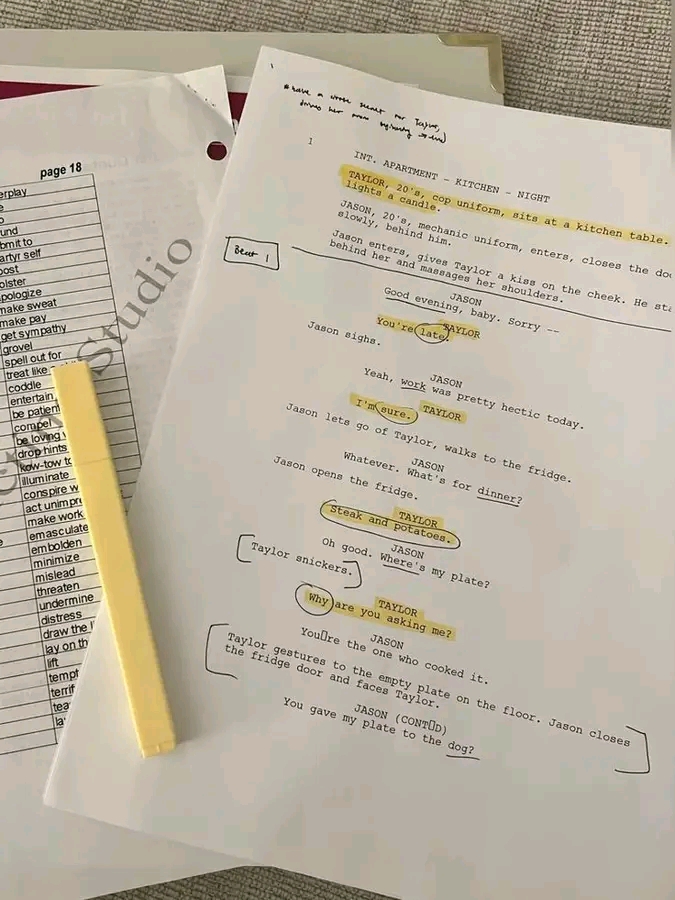 page 18
erplay
e
o
und
bmit to
artyr self
post
olster
pologize
make sweat
make pay
get sympathy
grovel
spell out for
treat like
coddle
entertain
be patient
compel
be loving
drop hints
kow-tow to
illuminate
conspire w
act unimpr
make work
emasculate
embolden
minimize
mislead
threaten
undermine
distress
draw the l
lay on th
lift
tempt
terrif
tea
la
Studio
1
INT. APARTMENT - KITCHEN - NIGHT
TAYLOR, 20's, cop uniform, sits at a kitchen table.
lights a candle.
JASON, 20's, mechanic uniform, enters, closes the doo
slowly, behind him.
Jason enters, gives Taylor a kiss on the cheek. He sta
behind her and massages her shoulders.
Beat 1
JASON
Good evening, baby. Sorry --
TAYLOR
You're late
Jason sighs.
JASON
Yeah, work was pretty hectic today.
TAYLOR
I'm sure.
Jason lets go of Taylor, walks to the fridge.
JASON
Whatever. What's for dinner?
Jason opens the fridge.
TAYLOR
Steak and potatoes.
JASON
Oh good. Where's my plate?
Taylor snickers.
TAYLOR
Why are you asking me?
JASON
You▯re the one who cooked it.
Taylor gestures to the empty plate on the floor. Jason closes
the fridge door and faces Taylor.
JASON (CONT▯D)
You gave my plate to the dog?